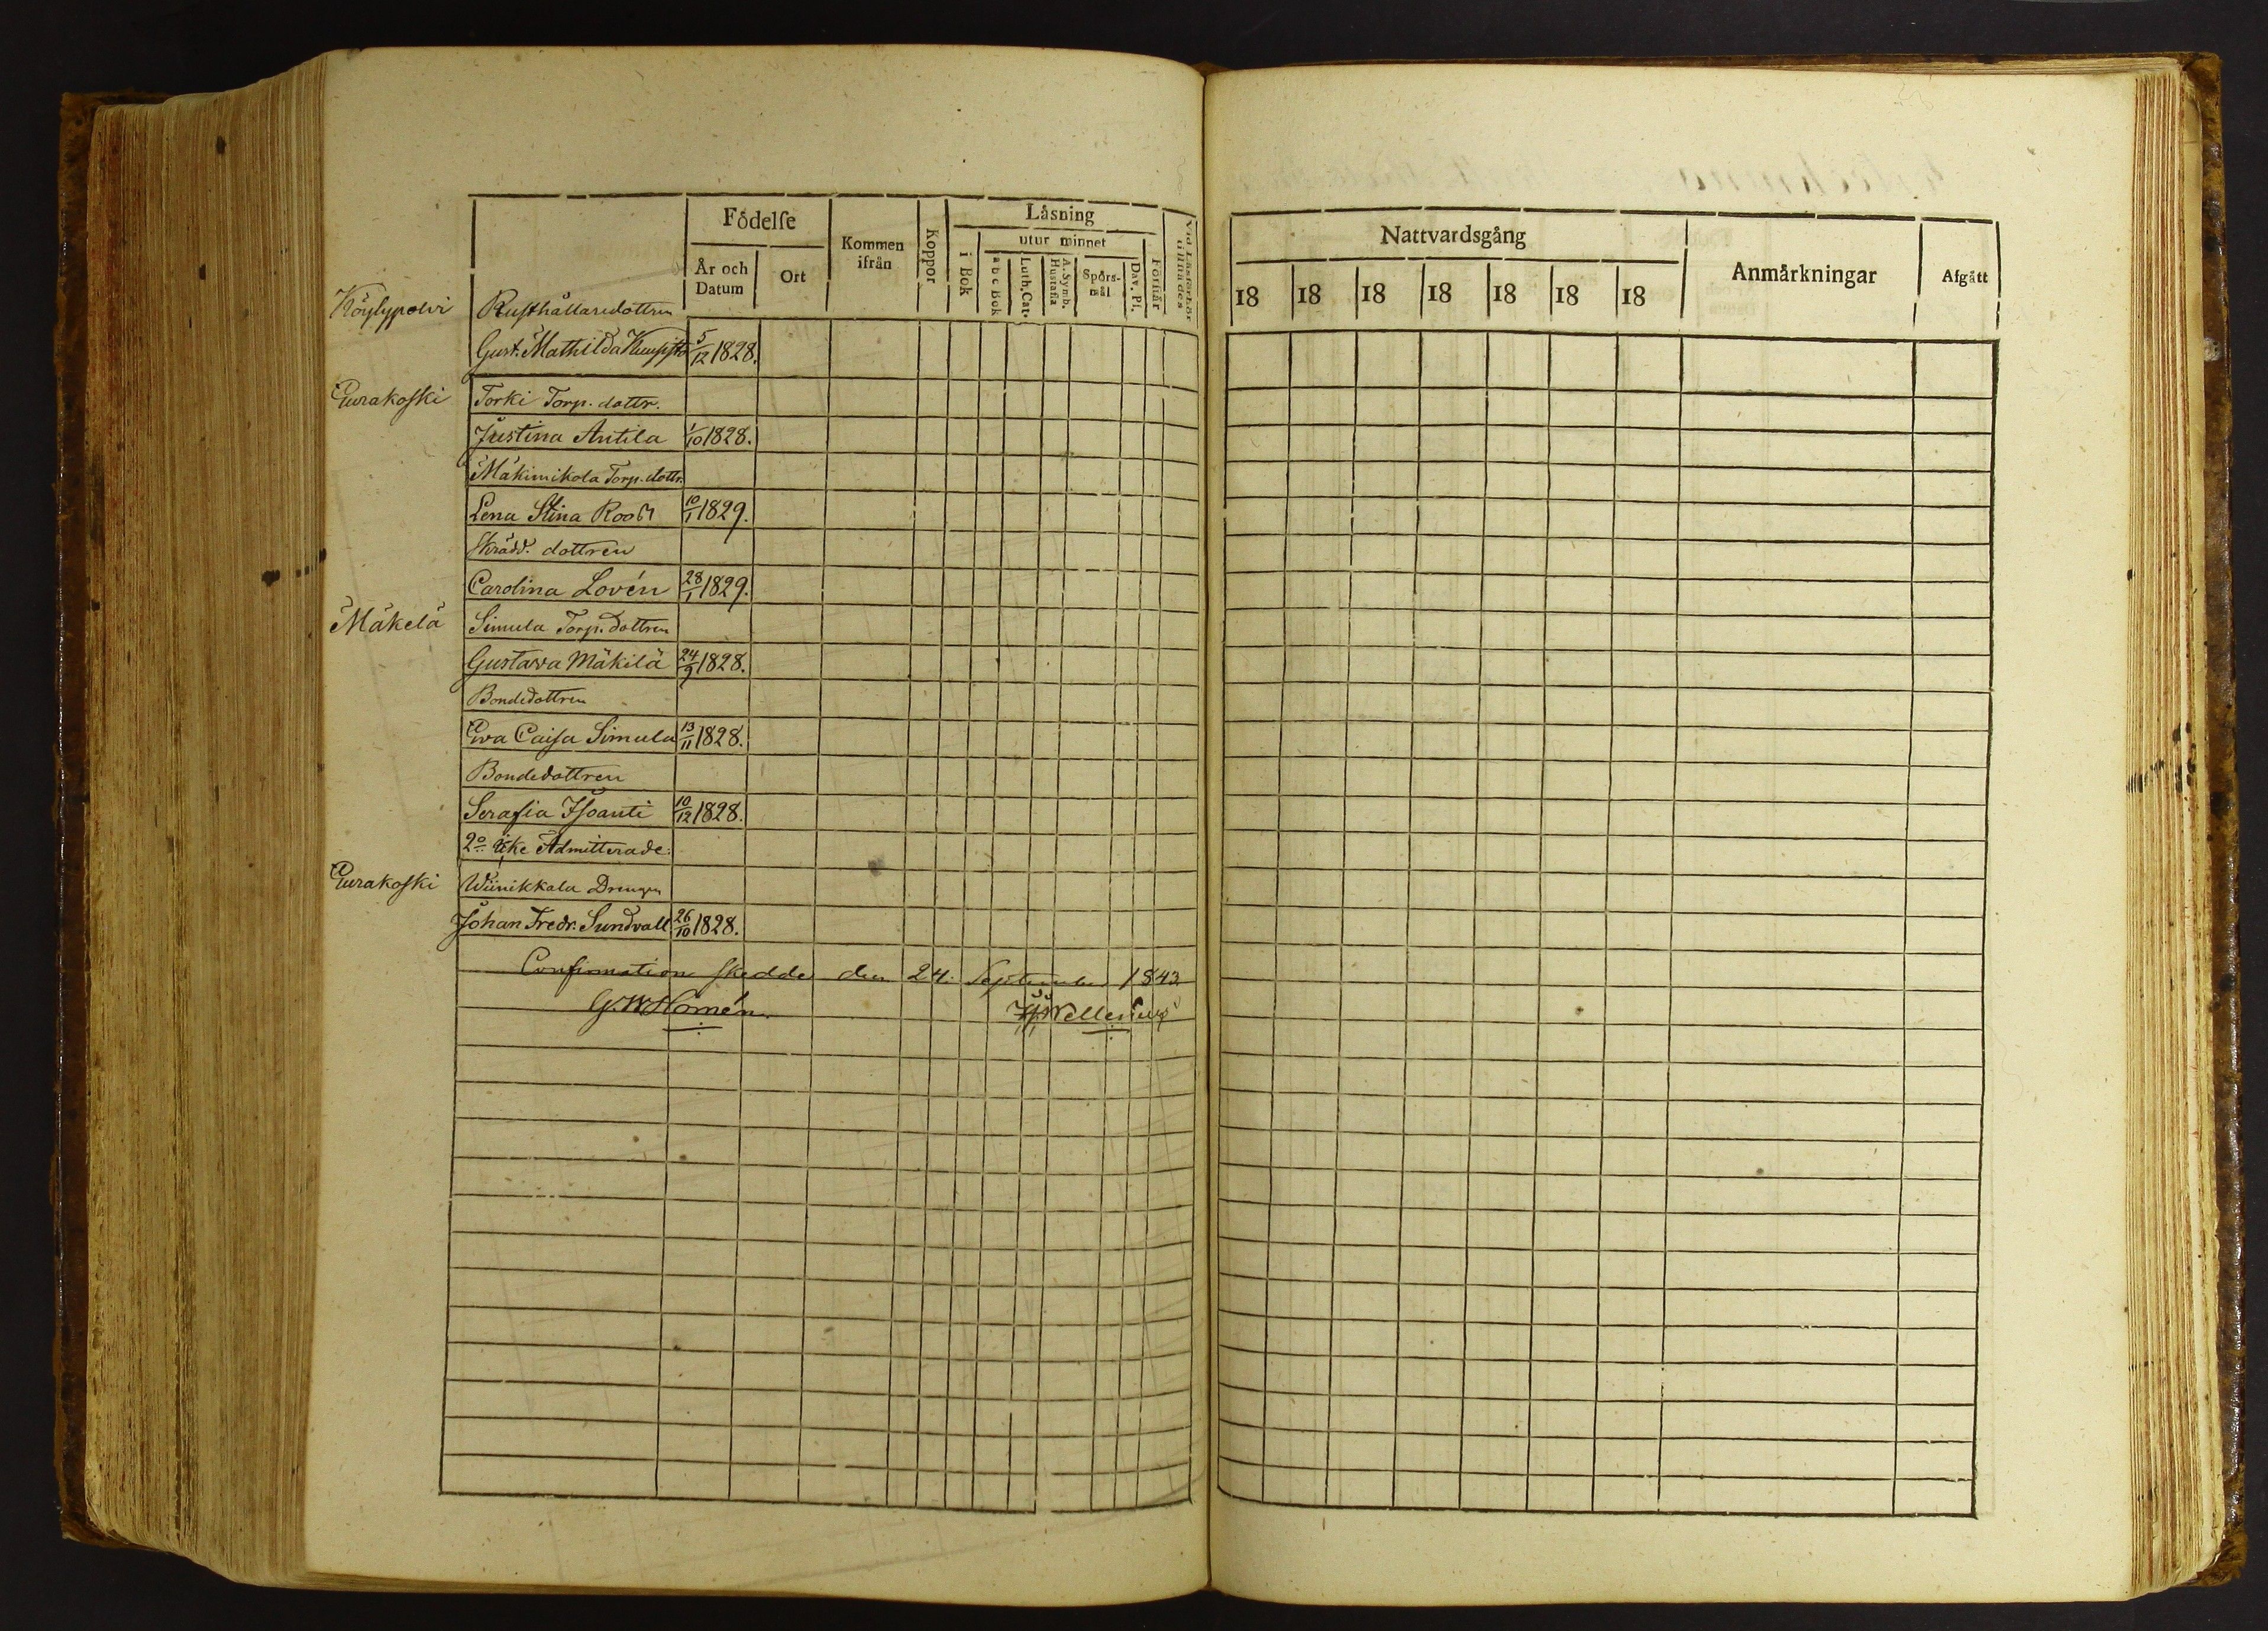 Födelse
År och Datum
Ort
Kommen ifrån
Koppor
Läsning
i Bok
utur minnet
a b c Bok
Luth. Cat.
A. Symb. Hustafla
Spörs-mål
Dav. Ps.
Förstår
Vid Läsförhör tillstädes
Nattvardsgång
18 18 18 18 18 18 18
Anmärkningar
Afgått
Köylypolvi Rusthållaredottren
Gust. Mathilda 5/12 1828.
Eurakoski Torki Torp. dottr.
Justina Antila 1/10 1828.
Mäkimikola Torp. dottr.
Lena Stina Rooth 10/1 1829.
Skrädd. dottren
Carolina Lovén 28/1 1829.
Mäkelä Simula Torp. dottren
Gustava Mäkilä 24/9 1828.
Bondedottren
Eva Caisa Simula 13/11 1828.
Bondedottren
Serafia Isoanti 10/12 1828.
2º Icke Admitterade:
Eurakoski Wiinikkala Drengen
Johan Fredr. Sundvall 26/10 1828.
Confirmation skedde den 24. September 1843.
G. W. Homén.